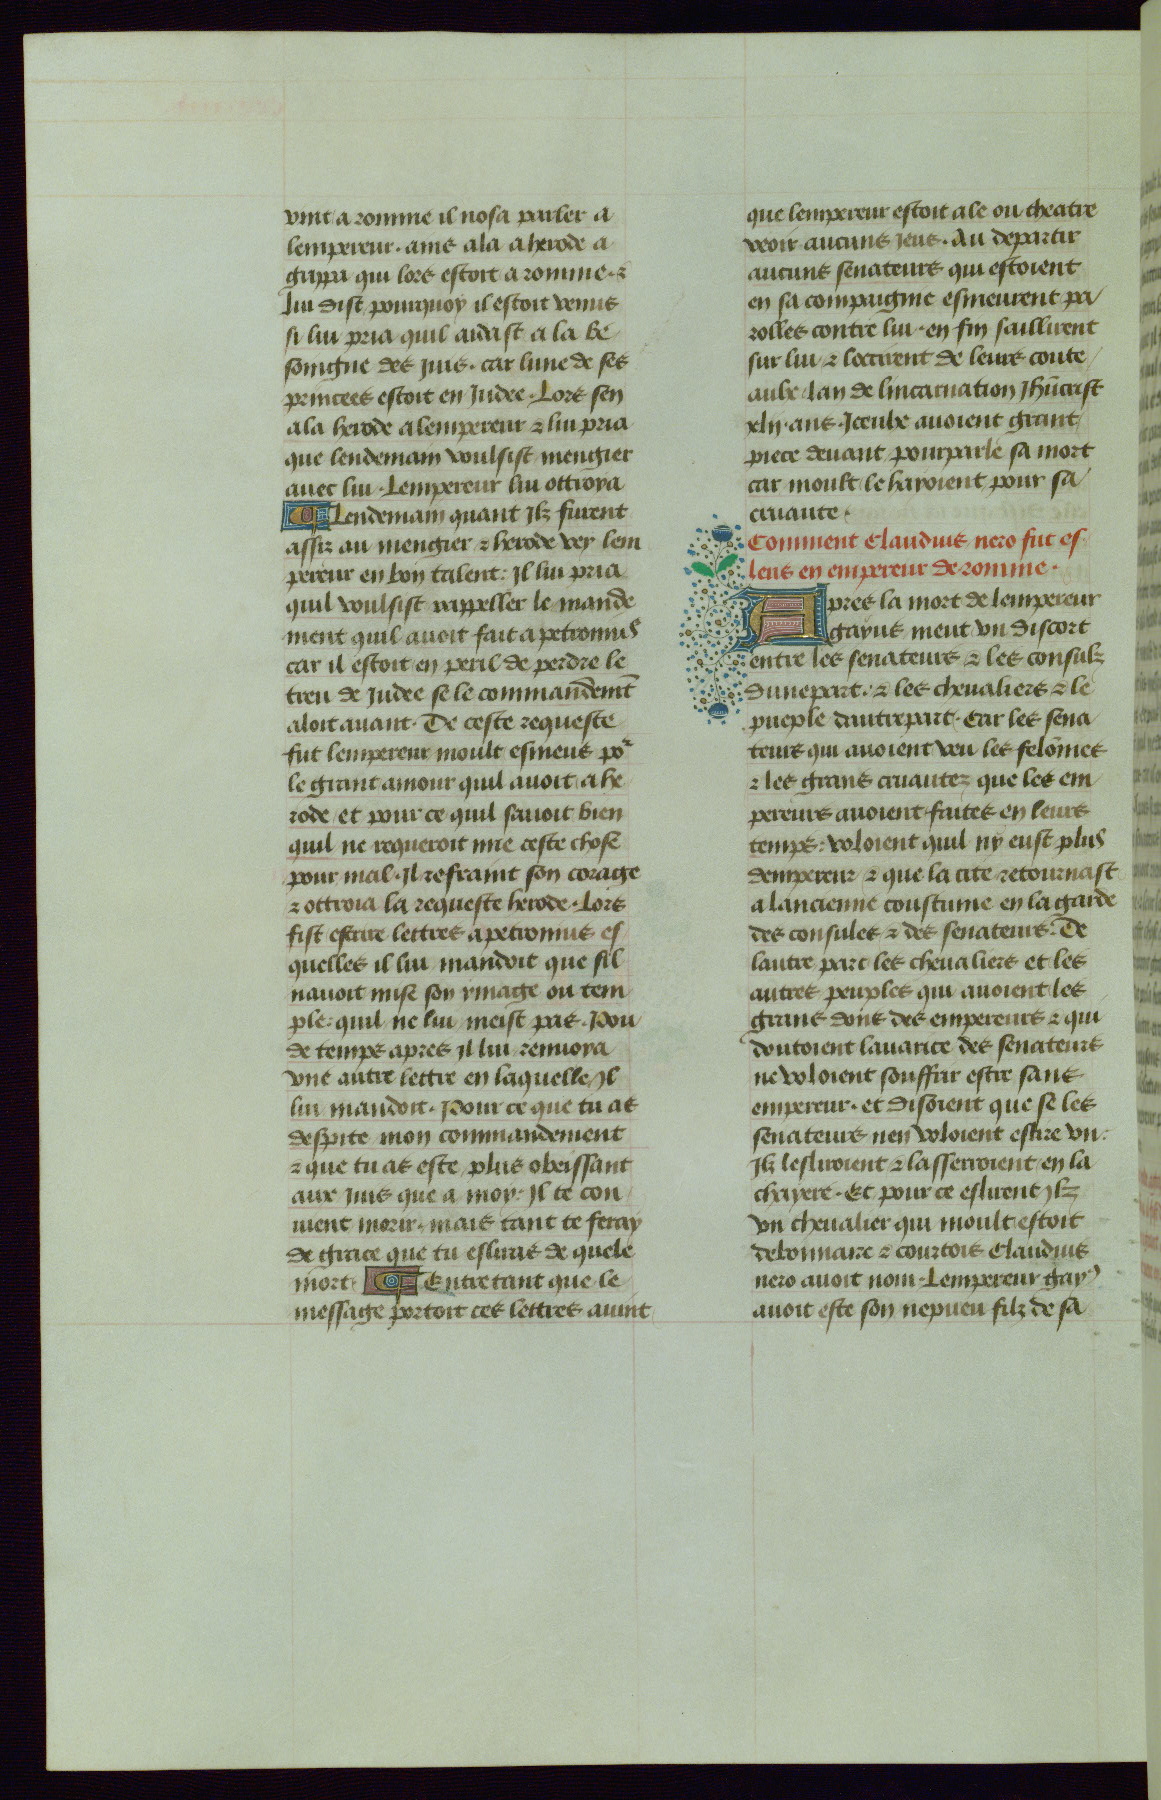 vint a romme il nosa parler a
lempereur · ains ala a herode a
grippa qui lors estoit a romme · ⁊
lui dist pourquoy il estoit venus
si lui pria quil aidast a la be
soingne des juis · car lune de ses
princees estoit en Judee · Lors sen
ala herode a lempereur ⁊ lui pria
que lendemain voulsist mengier
auec lui · Lempereur lui ottroya
Lendemain quant Ilz furent
assiz au mengier ⁊ herode vey lem
pereur en bon talent : Il lui pria
quil voulsist rappeller le mande
ment quil auoit fait a petronius
car il estoit en peril de perdre le
treu de Judee se le commandemt̄
aloit auant · De ceste requeste
fut lempereur moult esmeus por
le grant amour quil auoit a he
rode / et pour ce quil sauoit bien
quil ne requeroit mie ceste chose
pour mal · Il refraint son corage
⁊ ottroia la requeste herode · Lors
fist escrire lettres a petronius es
quelles il lui mandoit que sil
nauoit mise son ymage ou tem
ple : quil ne lui meist pas · Pou
de temps apres Il lui renuoya
vne autre lettre en laquelle / Il
lui mandoit · Pour ce que tu as
despite mon commandement
⁊ que tu as este plus obeissant
aux Juis que a moy : Il te con
uient morir · mais tant te feray
de grace que tu esliras de quele
mort · Entretant que le
message portoit ces lettres auint
que lempereur estoit ale ou theatre
veoir aucuns Jeus · Au departir
aucuns senateurs qui estoient
en sa compaignie esmeurent pa
rolles contre lui · en fin saillirent
sur lui ⁊ loccirent de leurs coute
aulx · Lan de lincarnation Jhūcrist
xlij · ans · Iceulx auoient grant
piece deuant pourparle sa mort
car moult le hayoient pour sa
cruaute ·
Comment Claudius nero fut es
leus en empereur de romme ·
Apres la mort de lempereur
gayus meut vn discort
entre les senateurs ⁊ les consulz
dunepart · ⁊ les cheualiers ⁊ le
pueple dautrepart · Car les sena
teurs qui auoient veu les felōnies
⁊ les grans cruautez que les em
pereurs auoient faites en leurs
temps : voloient quil ny eust plus
dempereur / ⁊ que la cite retournast
a lancienne coustume en la garde
des consules ⁊ des senateurs · De
lautre part les cheualiers et les
autres peuples qui auoient les
grans dons des empereurs ⁊ qui
doutoient lauarice des senateurs
ne voloient souffrir estre sans
empereur · et disoient que se les
senateurs nen voloient eslire vn :
Ilz lesliroient ⁊ lasserroient en la
chayere · Et pour ce eslirent Ilz
vn cheualier qui moult estoit
debonnaire ⁊ courtois Claudius
nero auoit nom · Lempereur gay9
auoit este son nepueu filz de sa